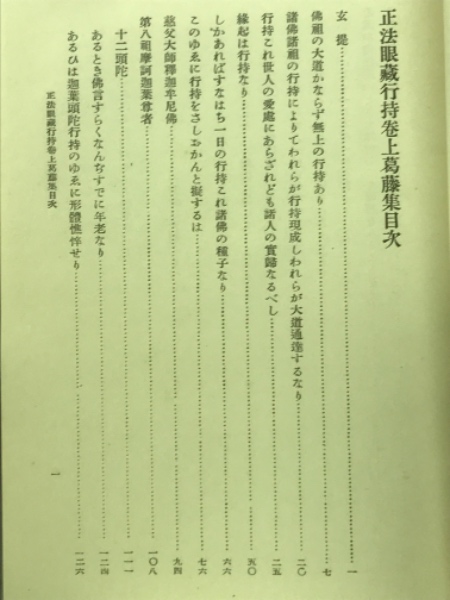 正法眼藏行持卷上葛藤集目次
玄提……一
佛祖の大道かならず無上の行持あり……七
諸佛諸祖の行持によりてわれらが行持現成しわれらが大道通達するなり……二〇
行持これ世人の愛處にあらざれども諸人の實歸なるべし……二五
緣起は行持なり……五〇
しかあればすなはち一日の行持これ諸佛の種子なり……六六
このゆゑに行持をさしおかんと擬するは……七六
慈父大師釋迦牟尼佛……九四
第八祖摩訶迦葉尊者……一〇八
十二頭陀……一一一
あるとき佛言すらくなんぢすでに年老なり……一二四
あるひは迦葉頭陀行持のゆゑに形體憔悴せり……一二六
正法眼藏行持卷上葛藤集目次
一